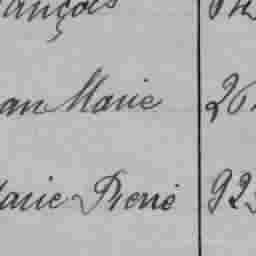 ançois
an Marie 26
arie René 923